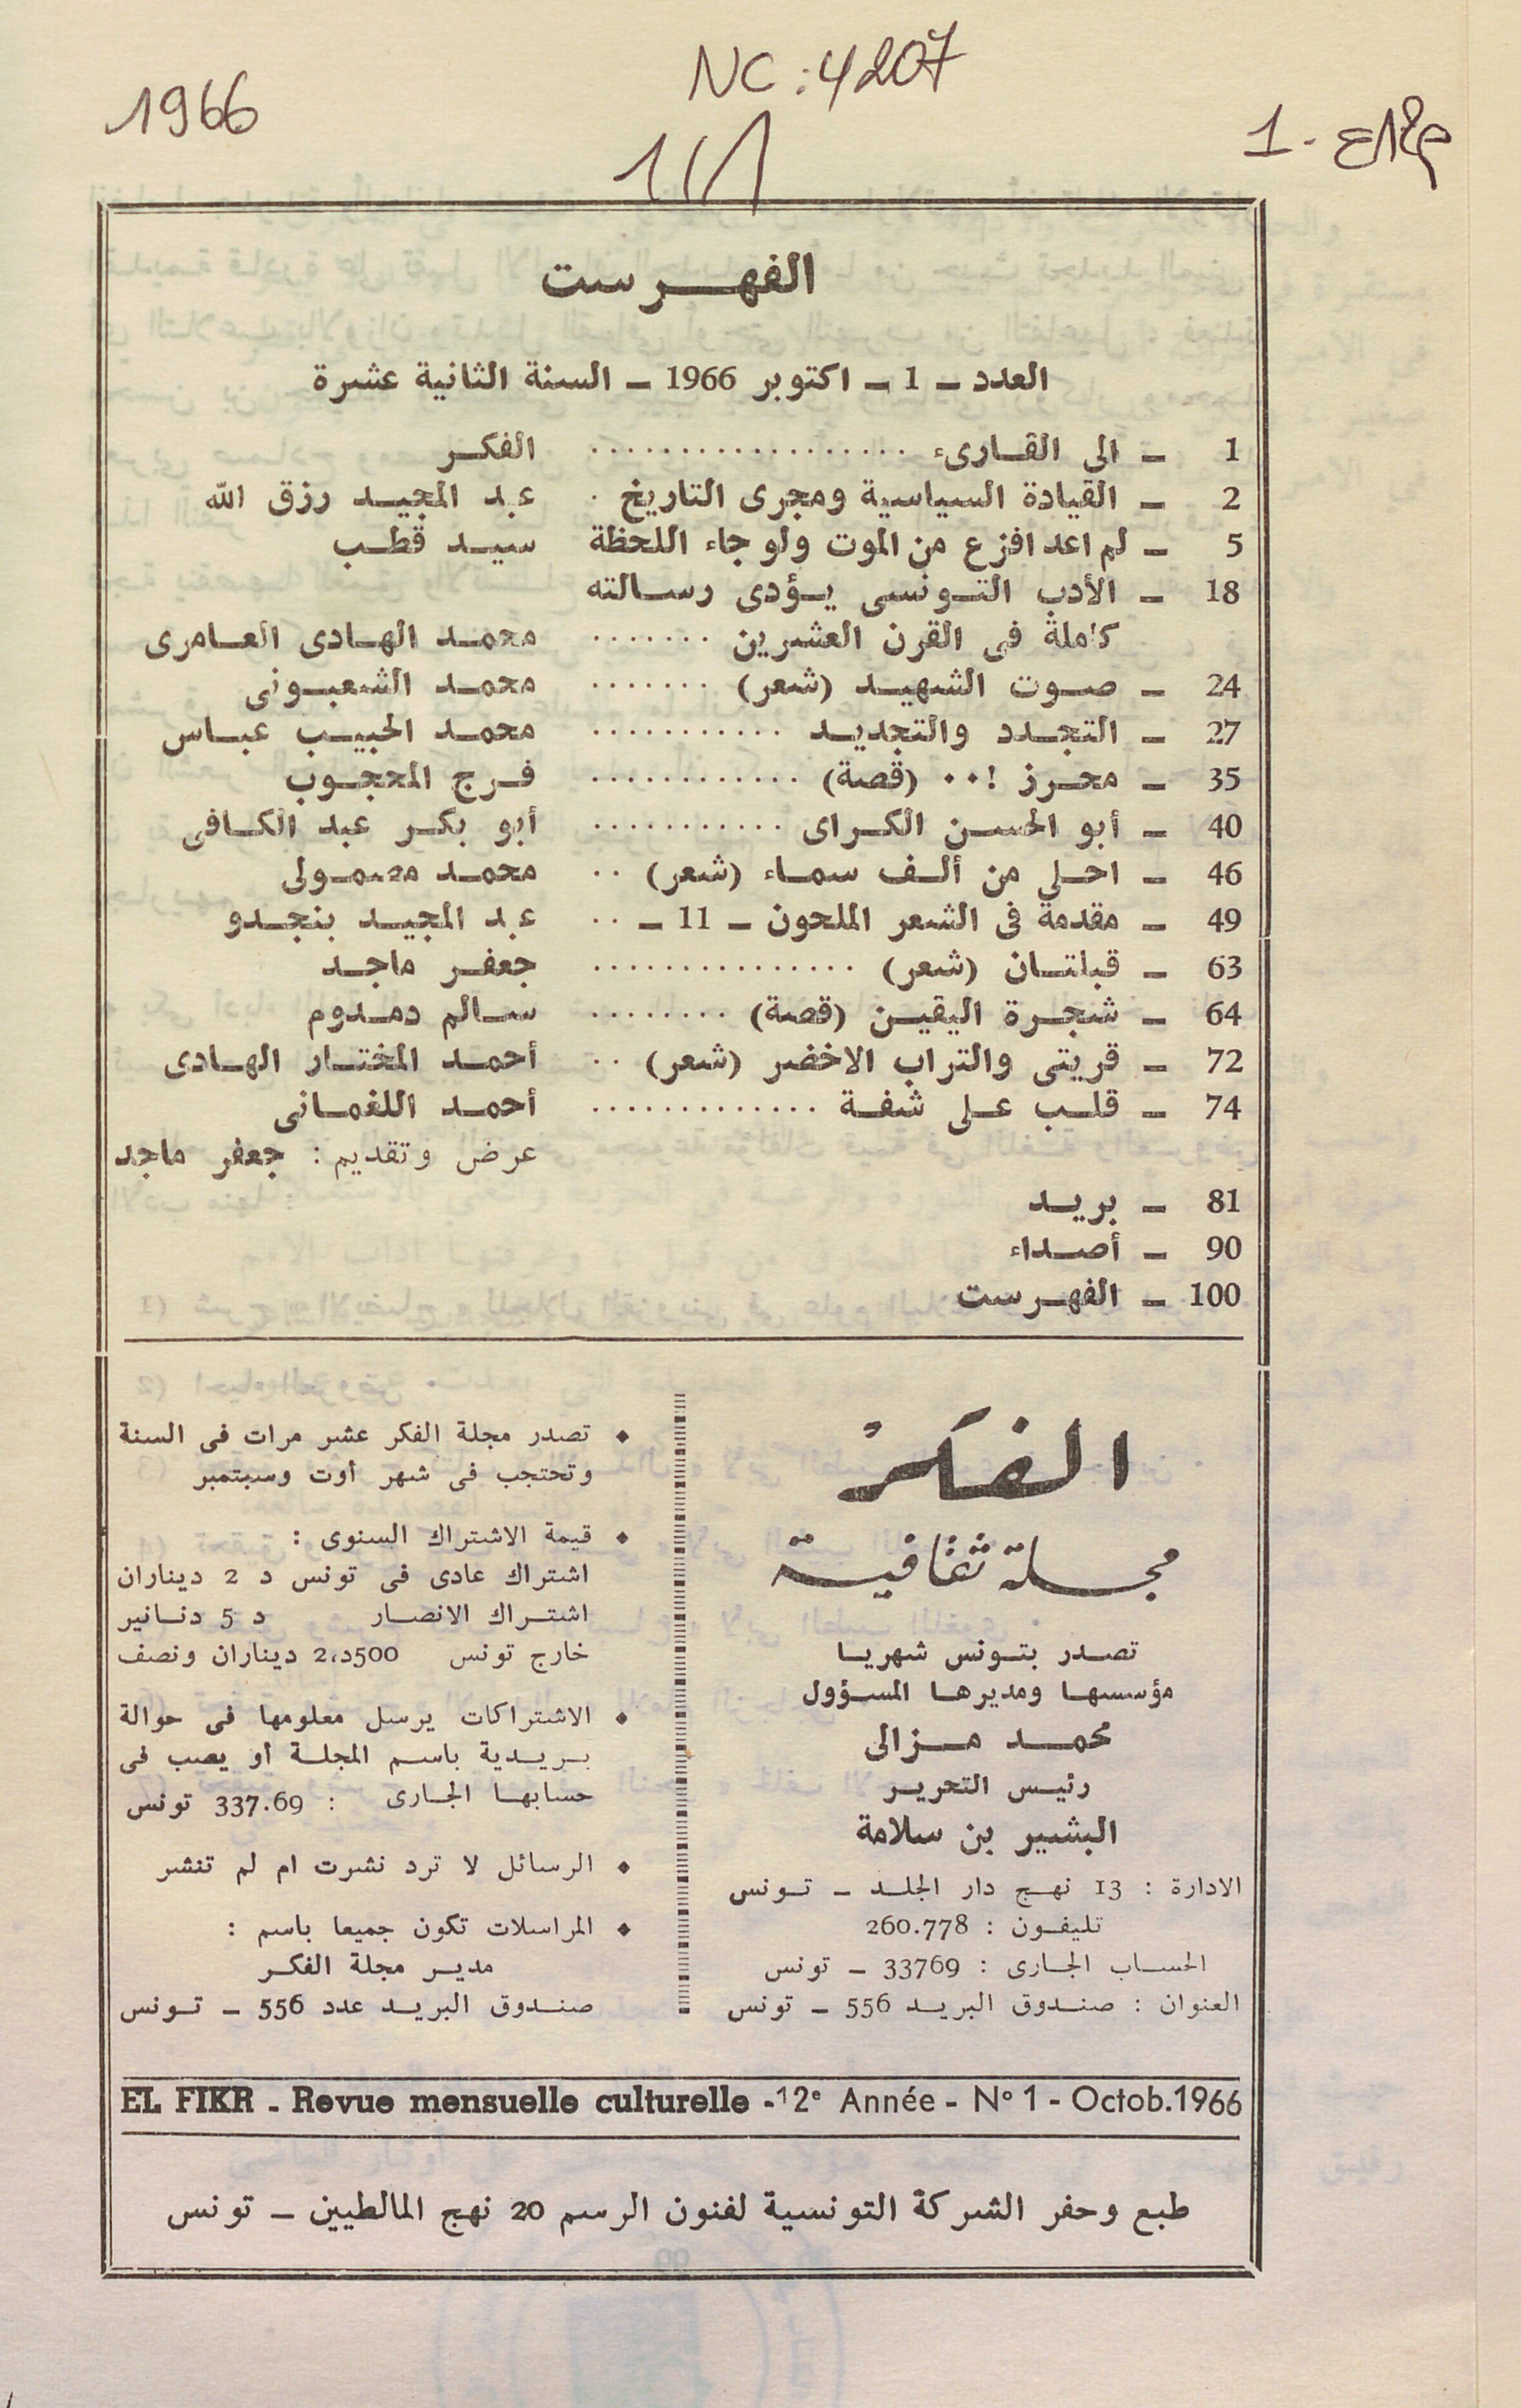 NC:4207
1966
1/1
1 -
الفهرست
العدد ـ 1 ـ اكتوبر 1966 ـ السنة الثانية عشرة
1 ـ الى القارىء .................. الفكر
2 ـ القيادة السياسية ومجرى التاريخ . عبد المجيد رزق الله
5 ـ لم اعد افزع من الموت ولو جاء اللحظة سيد قطب
18 ـ الأدب التونسى يؤدى رسالته
كاملة فى القرن العشرين ....... محمد الهادى العامرى
24 ـ صوت الشهيد (شعر) ....... محمد الشعبونى
27 ـ التجدد والتجديد ........... محمد الحبيب عباس
35 ـ محرز !.. (قصة) ............ فرج المحجوب
40 ـ أبو الحسن الكراى ........... أبو بكر عبد الكافى
46 ـ احلى من ألف سماء (شعر) .. محمد مصمولى
49 ـ مقدمة فى الشعر الملحون ـ 11 ـ .. عبد المجيد بنجدو
63 ـ قبلتان (شعر) ............... جعفر ماجد
64 ـ شجرة اليقين (قصة) ........ سالم دمدوم
72 ـ قريتى والتراب الاخضر (شعر) .. أحمد المختار الهادى
74 ـ قلب على شفة ............. أحمد اللغمانى
عرض وتقديم : جعفر ماجد
81 ـ بريد
90 ـ أصداء
100 ـ الفهرست
الفكر
مجلة ثقافية
تصدر بتونس شهريا
مؤسسها ومديرها المسؤول
محمد مزالى
رئيس التحرير
البشير بن سلامة
الادارة : 13 نهج دار الجلد ـ تونس
تليفون : 260.778
الحساب الجارى : 33769 ـ تونس
العنوان : صندوق البريد 556 ـ تونس
♦ تصدر مجلة الفكر عشر مرات فى السنة
وتحتجب فى شهر أوت وسبتمبر
♦ قيمة الاشتراك السنوى :
اشتراك عادى فى تونس د 2 ديناران
اشتراك الانصار د 5 دنانير
خارج تونس 500د،2 ديناران ونصف
♦ الاشتراكات يرسل معلومها فى حوالة
بريدية باسم المجلة أو يصب فى
حسابها الجارى : 337.69 تونس
♦ الرسائل لا ترد نشرت ام لم تنشر
♦ المراسلات تكون جميعا باسم :
مدير مجلة الفكر
صندوق البريد عدد 556 ـ تونس
EL FIKR - Revue mensuelle culturelle - 12e Année - N° 1 - Octob.1966
طبع وحفر الشركة التونسية لفنون الرسم 20 نهج المالطيين ـ تونس